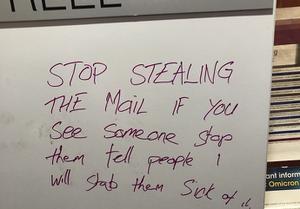 STOP STEALING
THE MAIL IF YOU
See Someone stop
them tell people I
will stab them Sick of it
ant inform
Omicron